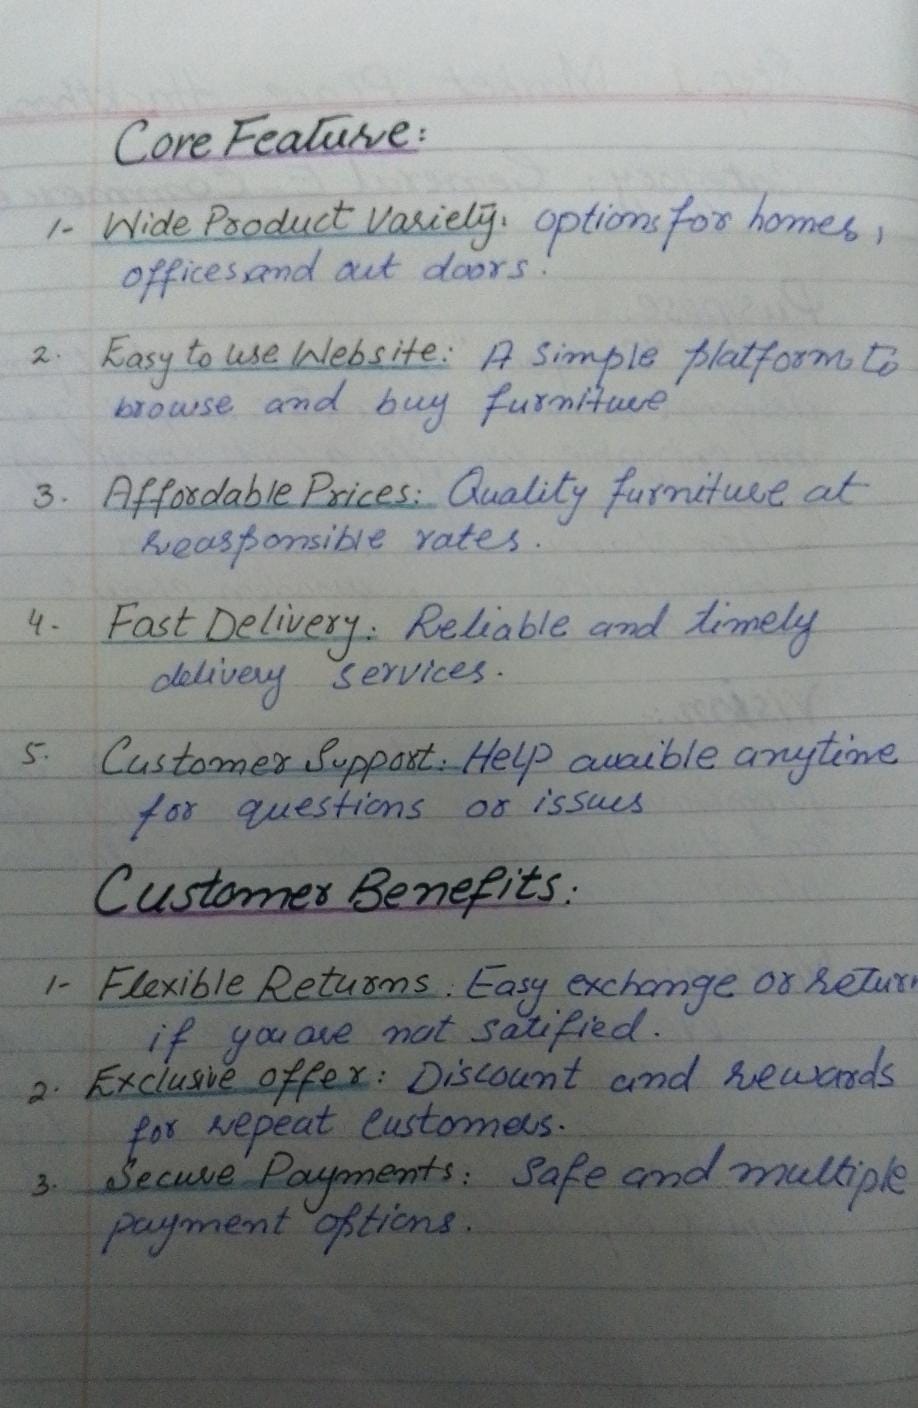 Core Feature:
1- Wide Product Variety: options for homes,
offices and out doors.
2. Easy to use Website: A simple platform to
browse and buy furniture
3. Affordable Prices: Quality furniture at
reasponsible rates.
4. Fast Delivery: Reliable and timely
delivery services.
5. Customer Support: Help avaible anytime
for questions or issues
Customer Benefits:
1- Flexible Returns: Easy exchange or return
if you are not satified.
2. Exclusive offer: Discount and rewards
for repeat Customers.
3. Secure Payments: Safe and multiple
payment options.